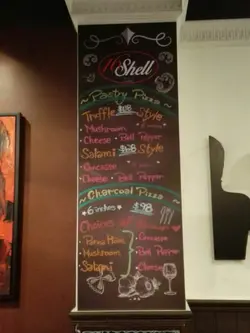 Shell
~ Pastry Pizza ~
Truffle $128 Style
• Mushroom
• Cheese • Bell Pepper
Salami $128 Style
• Chicken
• Cheese • Bell Pepper
~ Charcoal Pizza ~
* 6 inches * $98
Choices
• Parma Ham
• Chicken
• Bell Pepper
• Mushroom
• Salami
• Cheese